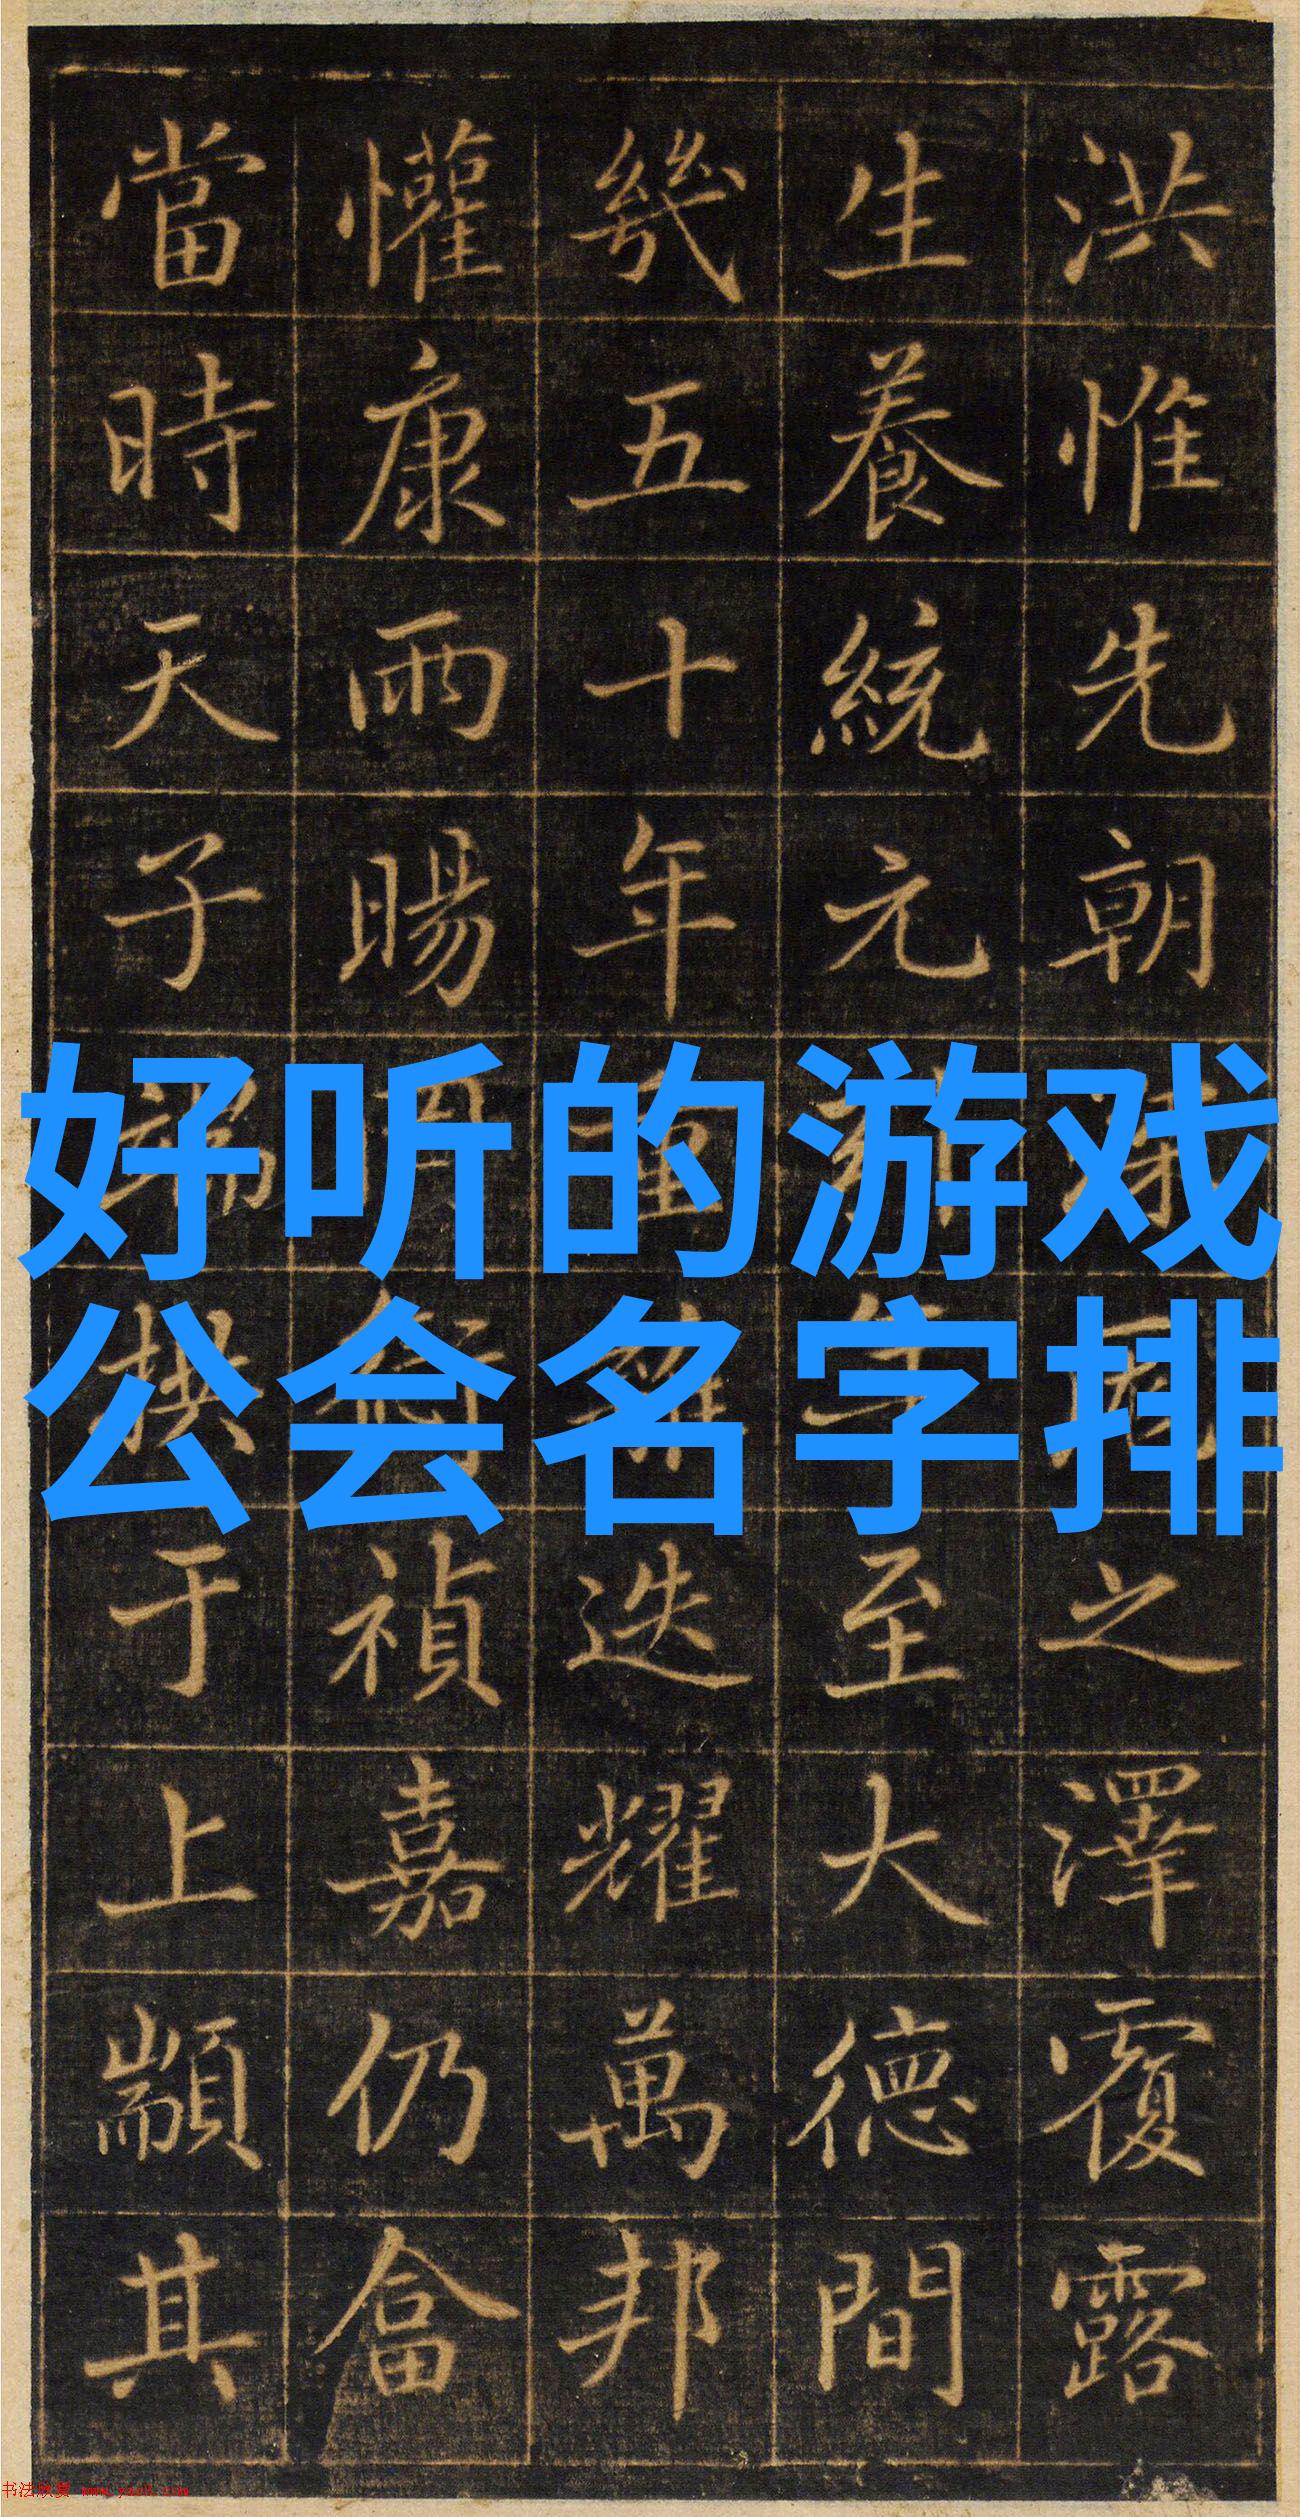 洪惟先朝之澤覆露
生養統元至大德間
幾五十年重迭耀萬邦
懽康雨暘禎嘉仍畣
當時天子端拱于上顓其
好听的游戏
公会名字排
书法欣赏 www.yac8.com